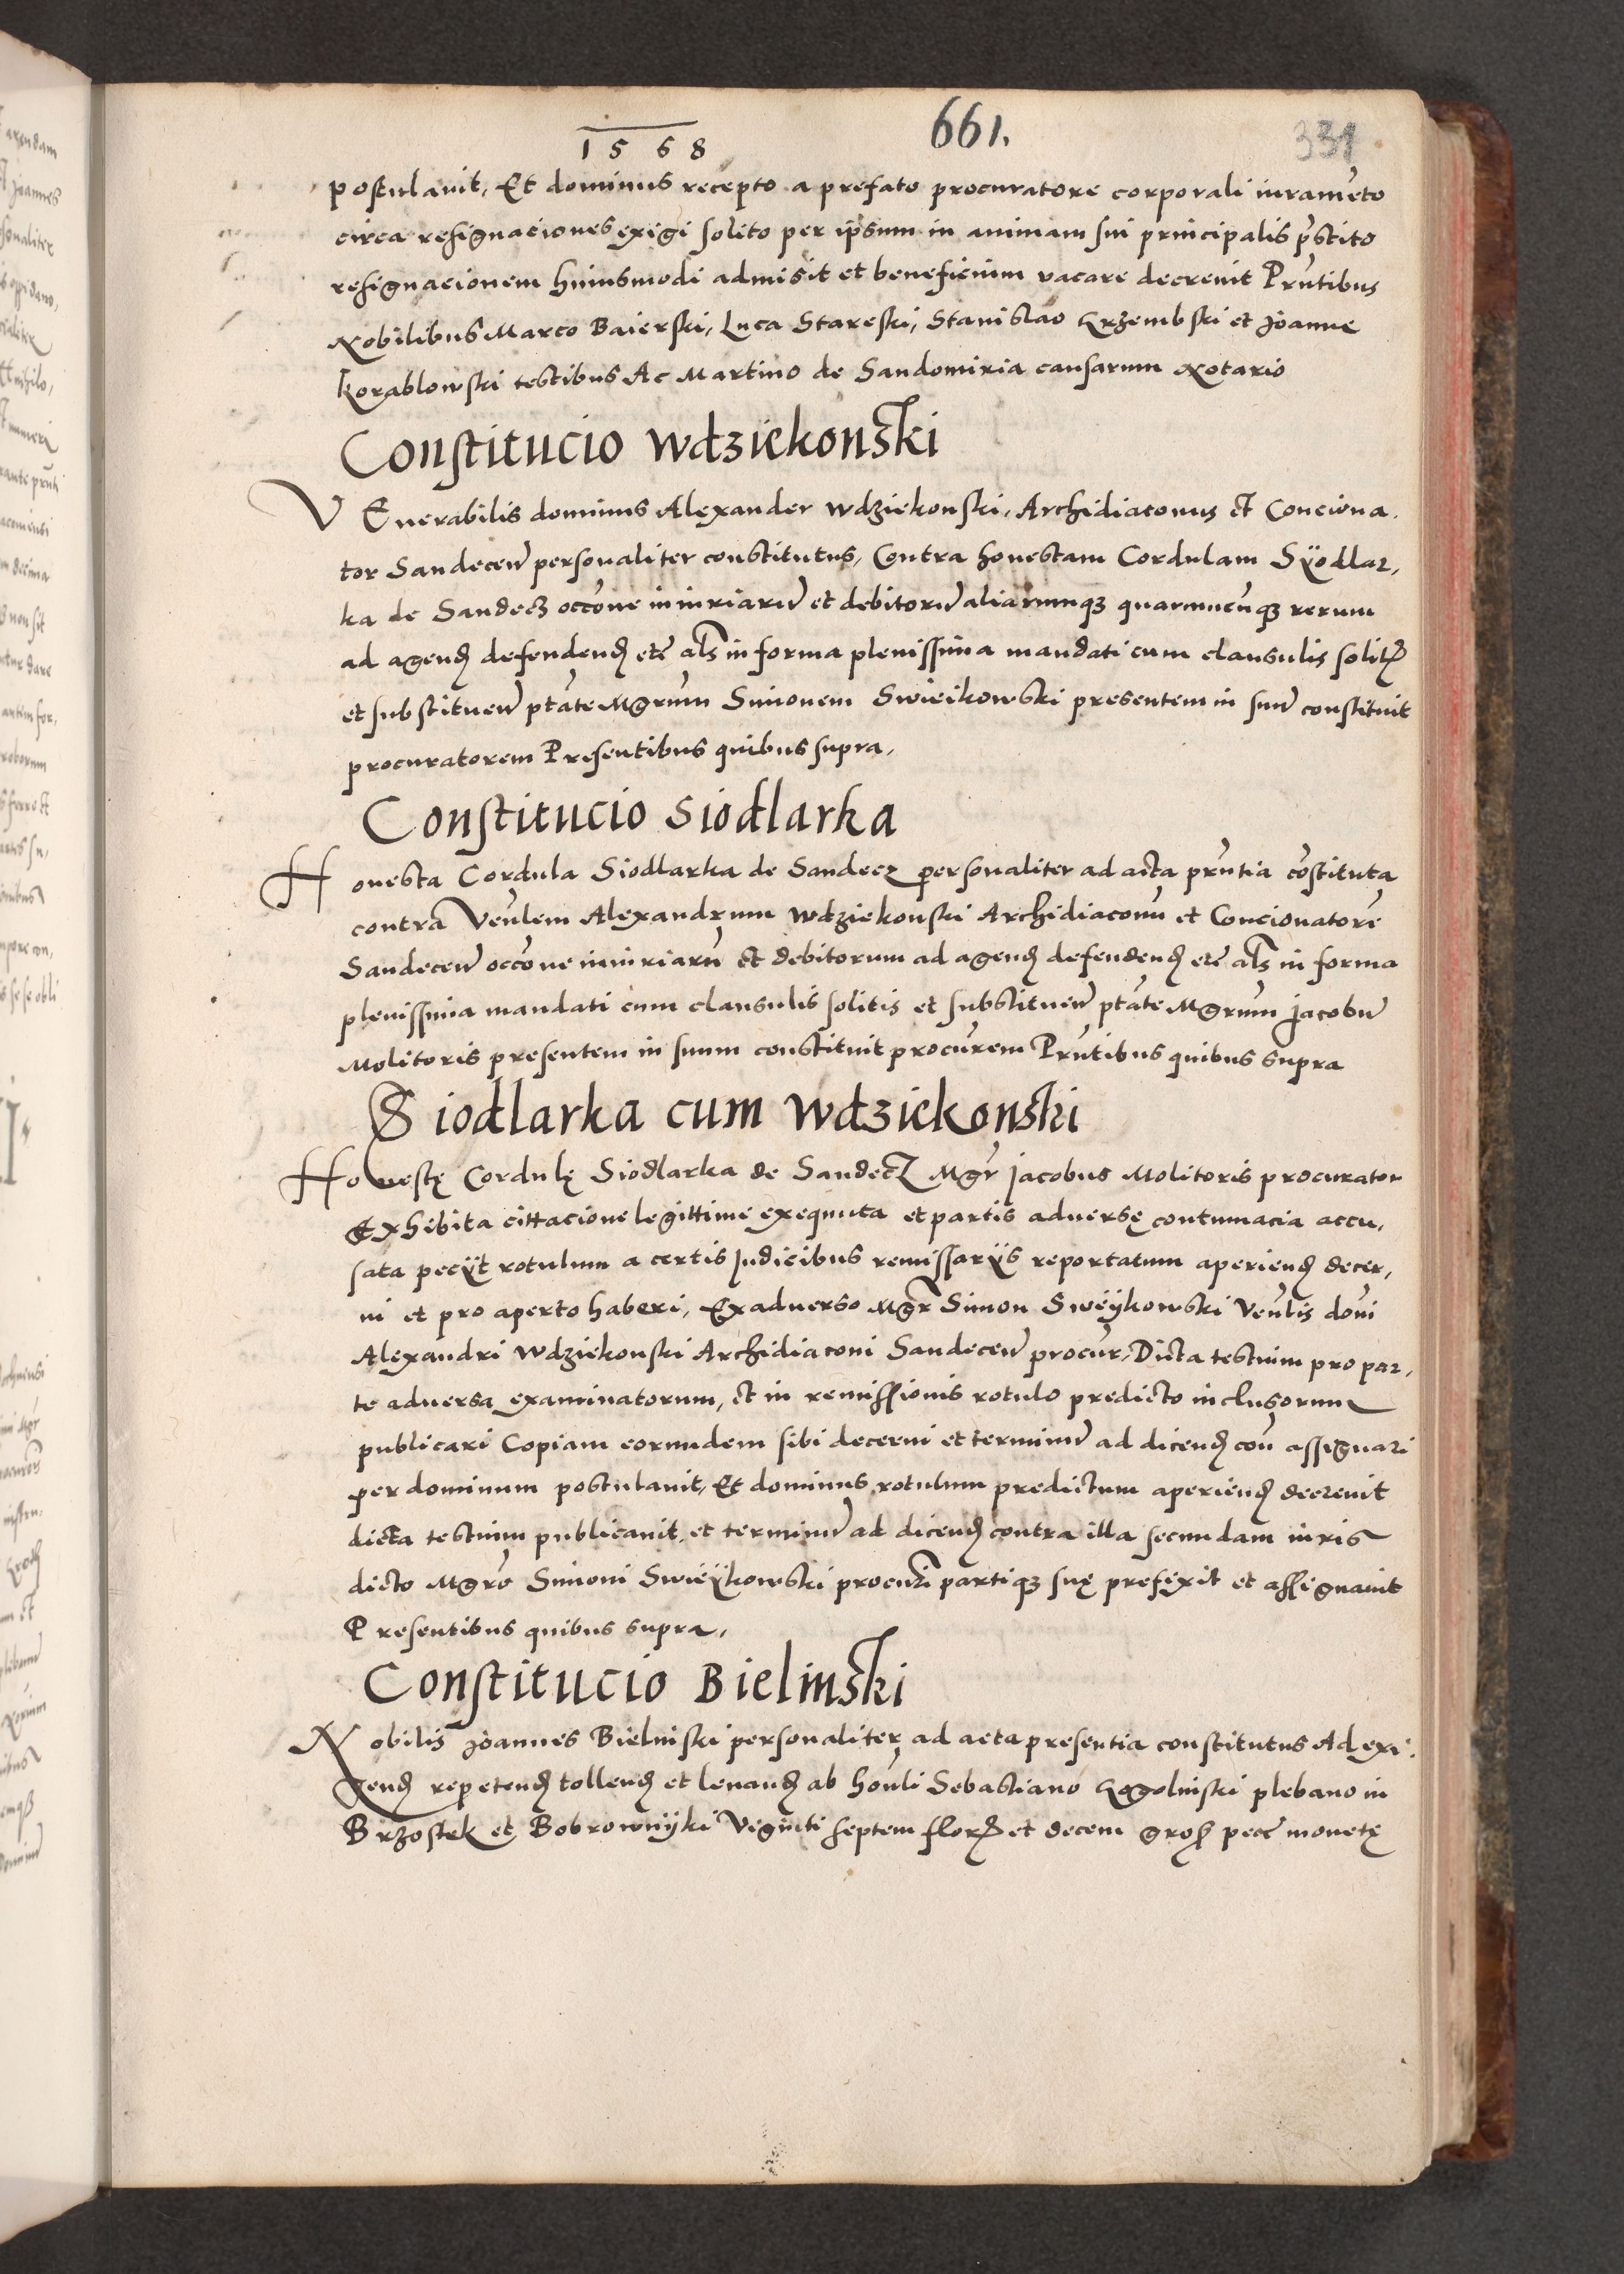 1568 661. 331
postulavit, Et dominus recepto a prefato procuratore corporali iuramēto
circa resignaciones exigi solito per ipsum in animam sui principalis pr̄stito
resignacionem huiusmodi admisit et beneficium vacare decrevit Prūtibus
Nobilibus Marco Baierski, Luca Stareski, Stanislao Krzembski et Joanne
Korablowski testibus Ac Martino de Sandomiria causarum Notario
Constitucio Wdziekonski
VEnerabilis dominus Alexander Wdziekonski, Archidiaconus et Conciona,
tor Sandeceñ personaliter constitutus, Contra honestam Cordulam Syodlar,
ka de Sandecz occōne iniuriarū et debitorū aliarumqꝫ quarumcūqꝫ rerum
ad agend defendend etc̄ al̄s in forma plenissima mandati cum clausulis solit
et substitueñ ptāte Mgrūm Simonem Swieikowski presentem in suū constituit
procuratorem Presentibus quibus supra,
Constitucio Siodlarka
Honesta Cordula Siodlarka de Sandecz personaliter ad acta prūtia cōstituta
contra Veñlem Alexandrum Wdziekonski Archidiaconū et Concionatorē
Sandeceñ occōne iniuriarū et debitorum ad agend defendend etc̄ al̄s in forma
plenissima mandati cum clausulis solitis et substitueñ ptāte Mgrūm Jacobū
Molitoris presentem in suum constituit procūrem Prūtibus quibus supra
Siodlarka cum Wdziekonski
Honestę Cordulę Siodlarka de Sandecz Mgr̄ Jacobus Molitoris procurator
Exhibita cittacione legittime exequuta et partis adversę contumacia accu,
sata pecÿt rotulum a certis Judicibus remissarÿs reportatum aperiend decer,
ni et pro aperto haberi, Ex adverso Mgr̄ Simon Sweÿkowski Veñlis doñi
Alexandri Wdziekonski Archidiaconi Sandeceñ procūr, Dicta testium pro par,
te adversa examinatorum, et in remissionis rotulo predicto inclusorum
publicari Copiam eorundem sibi decerni et terminū ad dicend coñ assignari
per dominum postulavit, Et dominus rotulum predictum aperiend decrevit
dicta testium publicavit, et terminū ad dicend contra illa secundam iuris
dicto Mgrō Simoni Swieÿkowski procūri partiqꝫ suę prefixit et assignavit
Presentibus quibus supra,
Constitucio Bielinski
Nobilis Joannes Bielniski personaliter ad acta presentia constitutus Ad exi,
gend repetend tollend et levand ab hoñli Sebastiano Gogolniski plebano in
Brzostek et Bobrownÿki Viginti septem flor et decem gros pecc̄ monetę